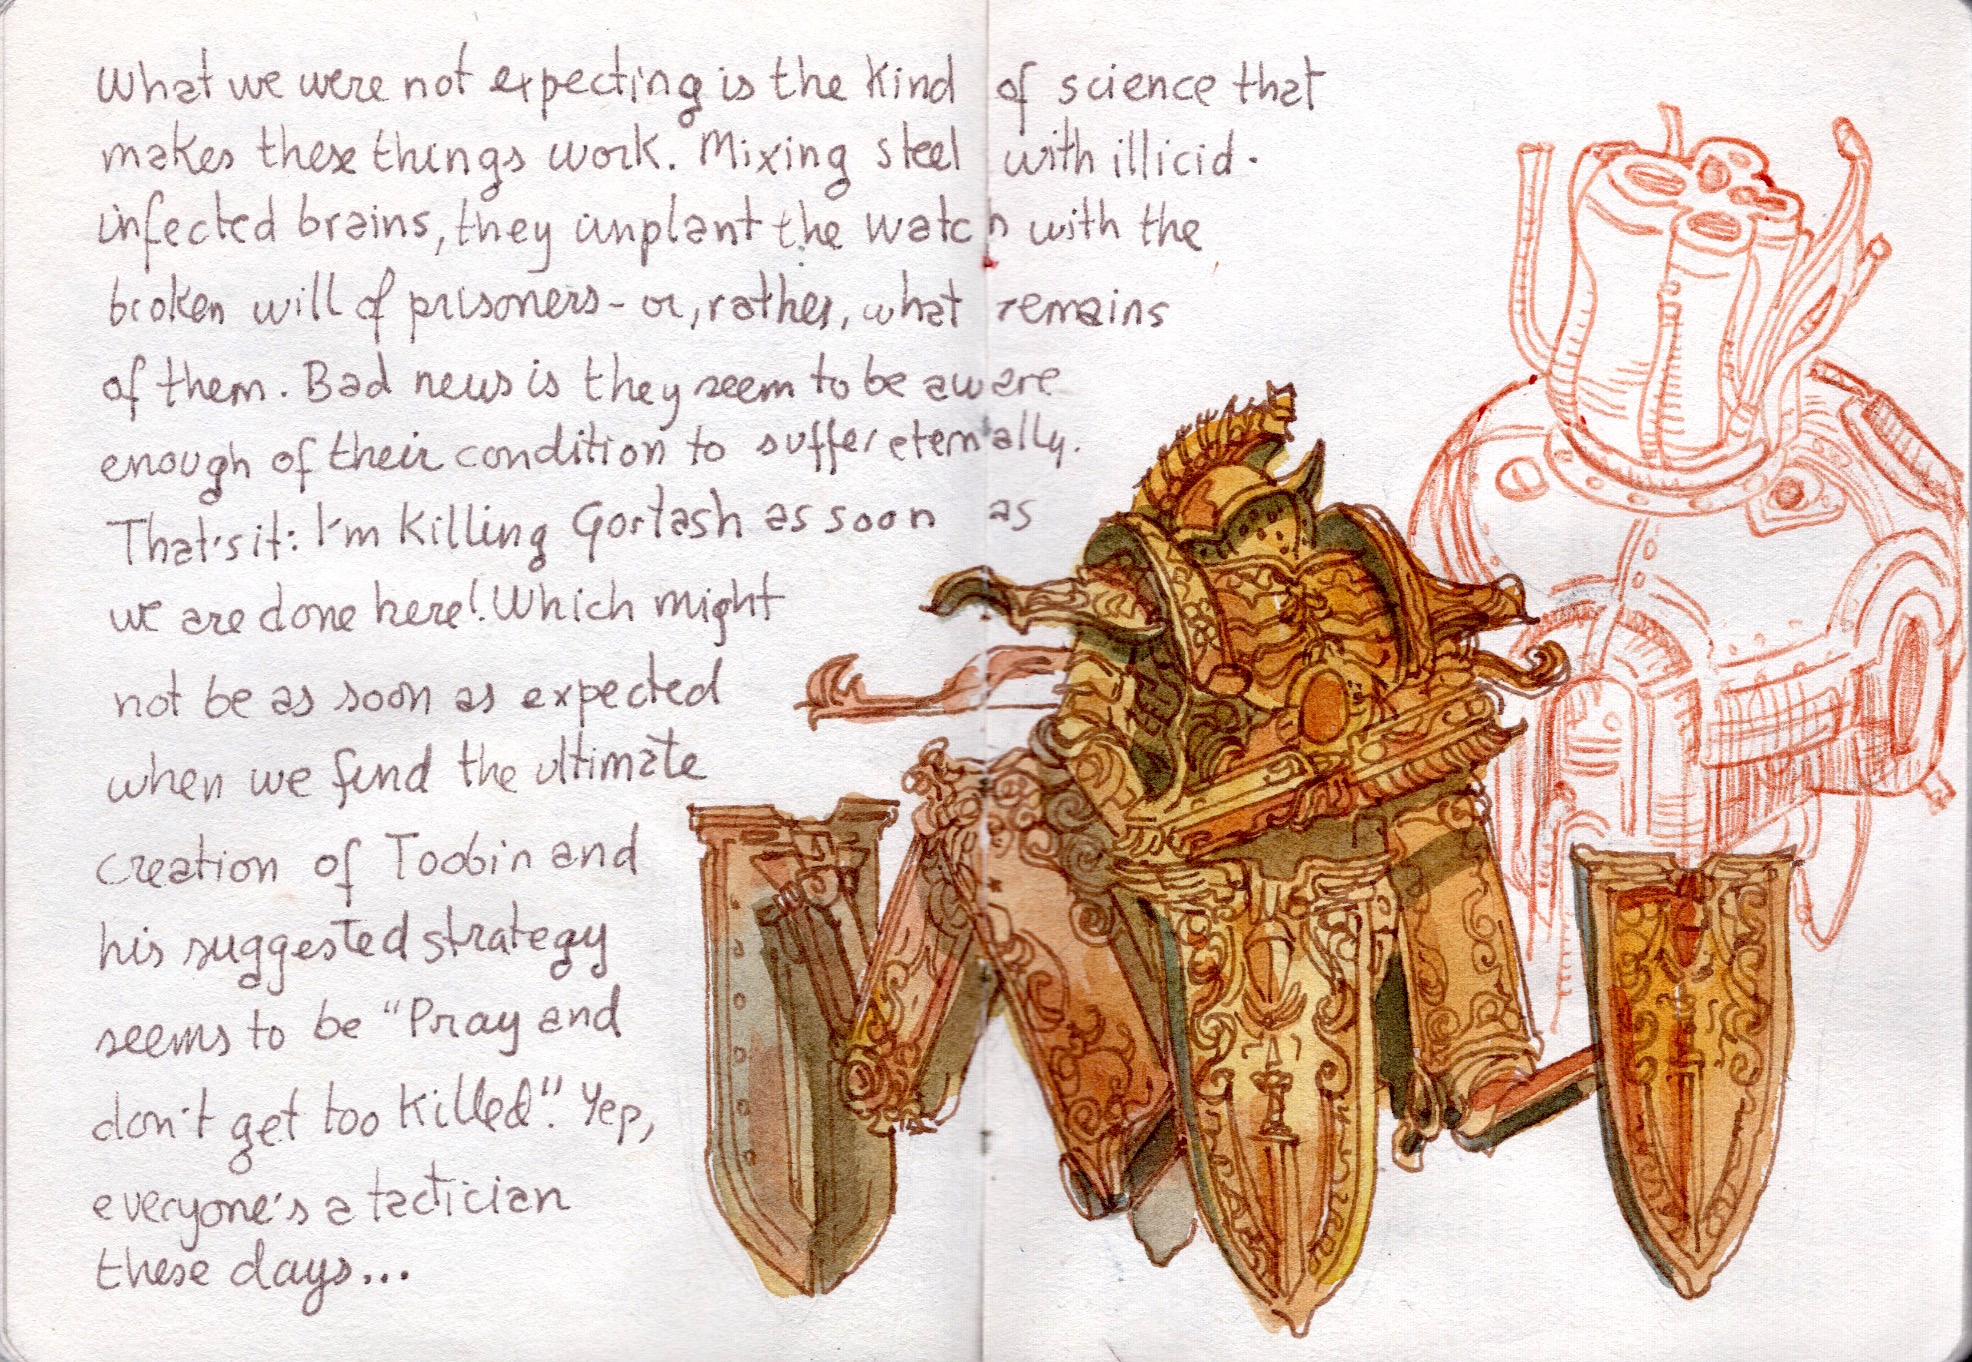 What we were not expecting is the kind of science that
makes these things work. Mixing steel with illicid-
infected brains, they implant the watch with the
broken will of prisoners - or, rather, what remains
of them. Bad news is they seem to be aware
enough of their condition to suffer eternally.
That's it: I'm killing Gortash as soon as
we are done here! Which might
not be as soon as expected
when we find the ultimate
creation of Toobin and
his suggested strategy
seems to be "Pray and
don't get too killed". Yep,
everyone's a tactician
these days...